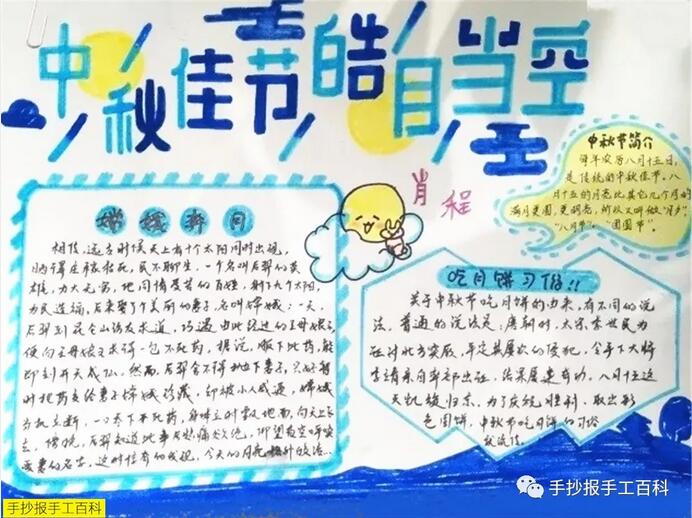 中秋佳节皓月当空
中秋节简介
每年农历八月十五日,
是传统的中秋佳节。八
月十五的月亮比其它几个月的
满月更圆,更明亮,所以又叫做“月夕”
“八月节”“团圆节”。
肖程
嫦娥奔月
相传,远古时候天上有十个太阳同时出现,
晒得庄稼枯死,民不聊生,一个名叫后羿的英
雄,力大无穷,他同情受苦的百姓,射下九个太阳,
为民造福,后来娶了个美丽的妻子,名叫嫦娥;一天,
后羿到昆仑山访友求道,巧遇由此经过的王母娘娘
便向王母娘娘求得一包不死药。据说,服下此药,能
即刻升天成仙。然而,后羿舍不得抛下妻子,只好暂
时把药交给妻子嫦娥珍藏,却被小人威逼,嫦娥
为机立断,一口吞下不死药,身体立刻飘地面,向天上飞
去。傍晚,后羿知道此事后悲痛欲绝,仰望夜空呼唤
爱妻的名字,这时惊奇的发现,今天的月亮格外皎洁...
吃月饼习俗!!
关于中秋节吃月饼的由来,有不同的说
法。普通的说法是:唐朝时,太宗李世民为
征讨北方突厥,平定其屡次的侵犯,令手下大将
李靖亲自率部出征,结果屡建奇功。八月十五这
天凯旋归京。为了庆祝胜利,取出彩
色圆饼,中秋节吃月饼的习俗
就流传。
手抄报手工百科
手抄报手工百科